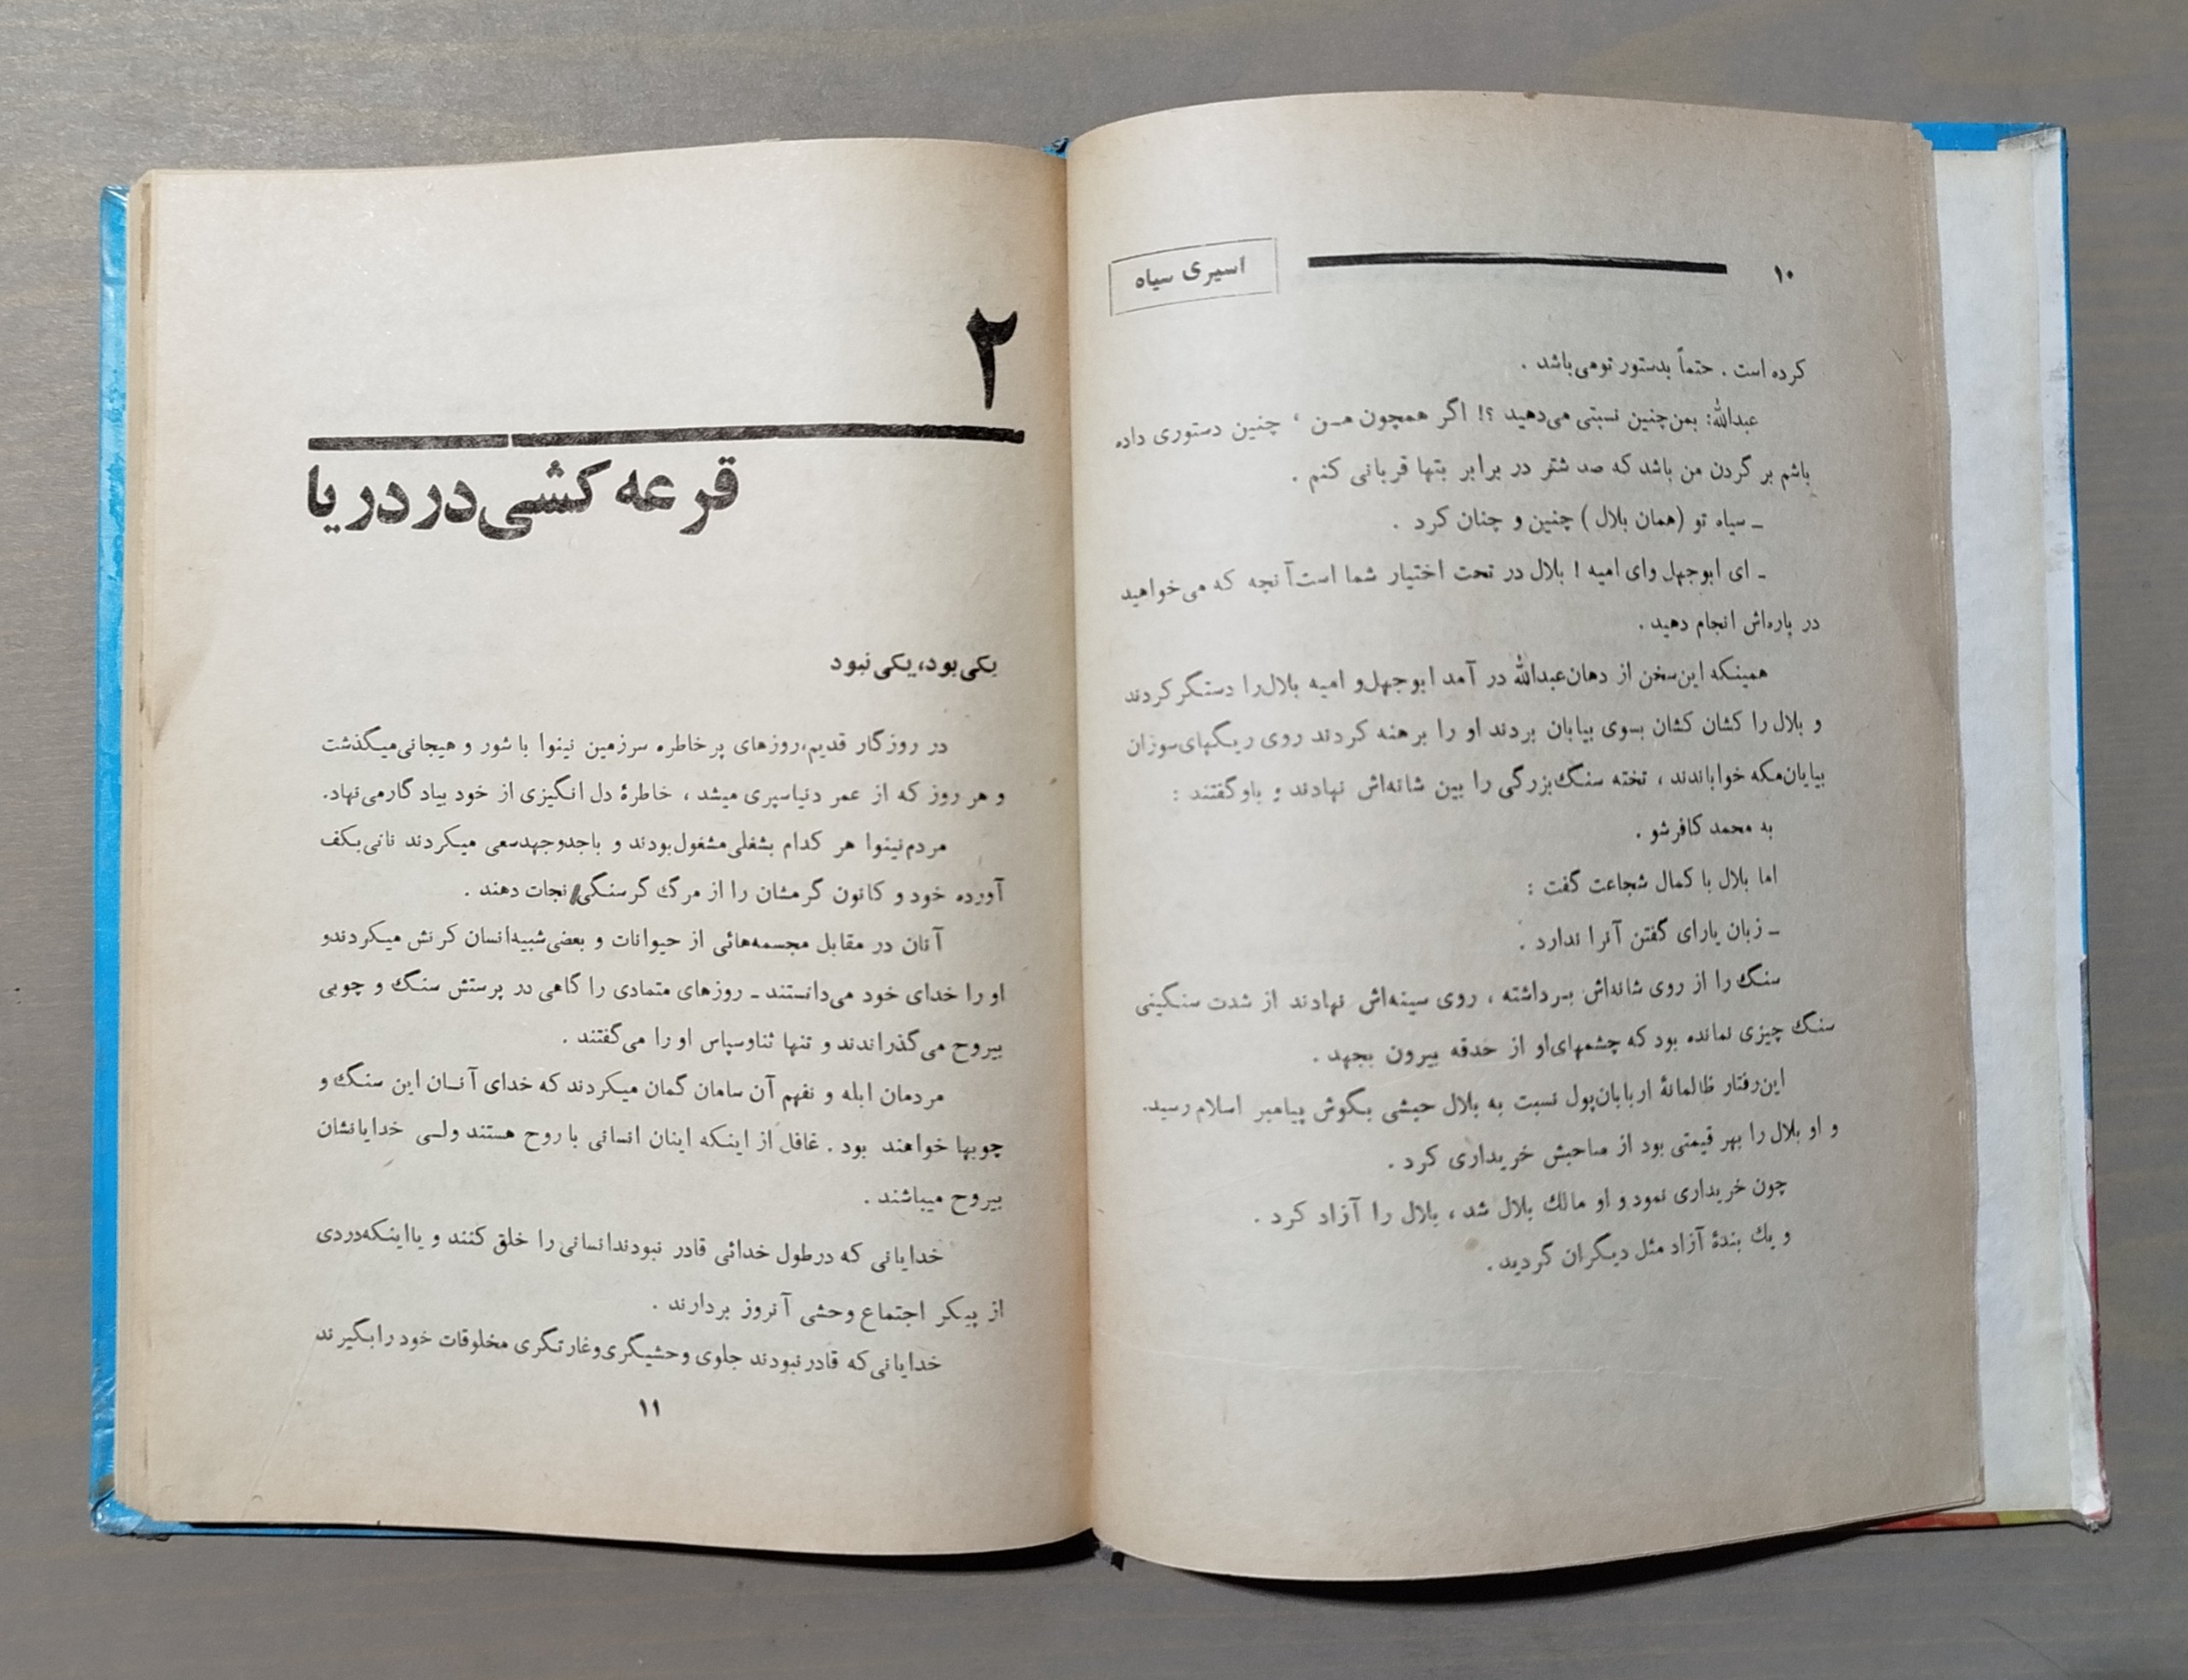 ۱۰
اسیری سیاه
کرده است . حتماً بدستور تومی‌باشد .
عبدالله: بمن‌چنین نسبتی می‌دهید ؟! اگر همچون مـن ، چنین دستوری داده
باشم بر گردن من باشد که صد شتر در برابر بتها قربانی کنم .
ـ سیاه تو (همان بلال) چنین و چنان کرد .
ـ ای ابوجهل وای امیه ! بلال در تحت اختیار شما است‌آنچه که می‌خواهید
در باره‌اش انجام دهید .
همینکه این‌سخن از دهان‌عبدالله در آمد ابوجهل‌و امیه بلال‌را دستگر‌کردند
و بلال را کشان کشان بسوی بیابان بردند او را برهنه کردند روی ریگهای‌سوزان
بیابان‌مکه خواباندند ، تخته سنگ‌بزرگی را بین شانه‌اش نهادند و باو‌گفتند :
به محمد کافرشو .
اما بلال با کمال شجاعت گفت :
ـ زبان یارای گفتن آنرا ندارد .
سنگ را از روی شانه‌اش بـرداشته ، روی سینه‌اش نهادند از شدت سنگینی
سنگ چیزی نمانده بود که چشمهای‌او از حدقه بیرون بجهد .
این‌رفتار ظالمانهٔ اربابان‌پول نسبت به بلال حبشی بگوش پیامبر اسلام رسید.
و او بلال را بهر قیمتی بود از صاحبش خریداری کرد .
چون خریداری نمود و او مالك بلال شد ، بلال را آزاد کرد .
و یك بندهٔ آزاد مثل دیگران گردید .
۲
قرعه کشی‌در دریا
یکی‌بود، یکی‌نبود
در روزگار قدیم،روزهای پرخاطره سرزمین نینوا با شور و هیجانی‌میگذشت
و هر روز که از عمر دنیاسپری میشد ، خاطرهٔ دل انگیزی از خود بیاد گارمی‌نهاد.
مردم‌نینوا هر کدام بشغلی‌مشغول‌بودند و باجدوجهدسعی میکردند نانی‌بکف
آورده خود و کانون گرمشان را از مرگ گرسنگی نجات دهند .
آنان در مقابل مجسمه‌هائی از حیوانات و بعضی‌شبیه‌انسان کرنش میکردندو
او را خدای خود می‌دانستند ـ روزهای متمادی را گاهی در پرستش سنگ و چوبی
بیروح می‌گذراندند و تنها ثناوسپاس او را می‌گفتند .
مردمان ابله و نفهم آن سامان گمان میکردند که خدای آنـان این سنگ و
چوبها خواهند بود . غافل از اینکه اینان انسانی با روح هستند ولـی خدایانشان
بیروح میباشند .
خدایانی که درطول خدائی قادر نبودندانسانی را خلق کنند و یااینکه‌دردی
از پیکر اجتماع وحشی آنروز بردارند .
خدایانی‌که قادرنبودند جلوی وحشیگری‌وغارتگری مخلوقات خود رابگیرند
۱۱